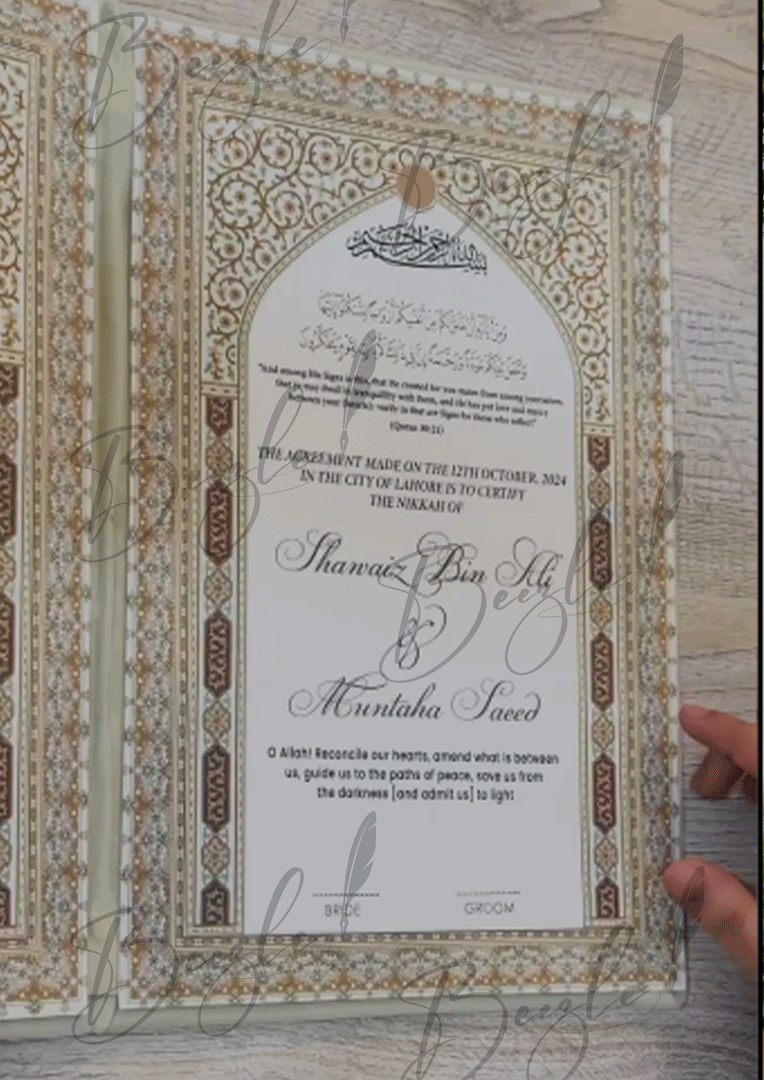 بسم الله الرحمن الرحيم
"And among His Signs is this, that He created for you mates from among yourselves,
that ye may dwell in tranquillity with them, and He has put love and mercy
between your (hearts): verily in that are Signs for those who reflect"
(Quran 30:21)
THE AGREEMENT MADE ON THE 12TH OCTOBER, 2024
IN THE CITY OF LAHORE IS TO CERTIFY
THE NIKKAH OF
Shawaiz Bin Ali
&
Muntaha Saeed
O Allah! Reconcile our hearts, amend what is between
us, guide us to the paths of peace, save us from
the darkness [and admit us] to light
BRIDE
GROOM
Beezle
Beezle
Beezle
Beezle
Beezle
Beezle